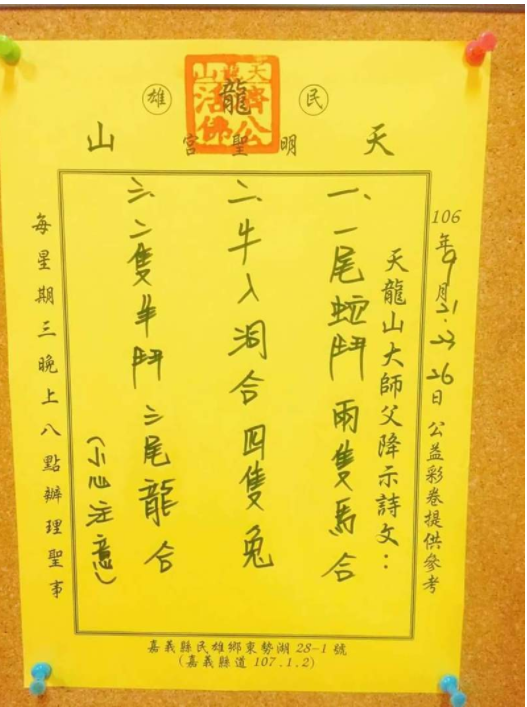 民雄
天龍山
明聖宮
天龍山
濟公
活佛
106年9月21.23 26日 公益彩卷提供參考
天龍山大師父降示詩文：
一、一尾蛇鬥兩隻馬合
二、牛入洞合四隻兔
三、二隻羊鬥三尾龍合
（小心注意）
每星期三晚上八點辦理聖事
嘉義縣民雄鄉東勢湖 28-1 號
(嘉義縣道 107.1.2)